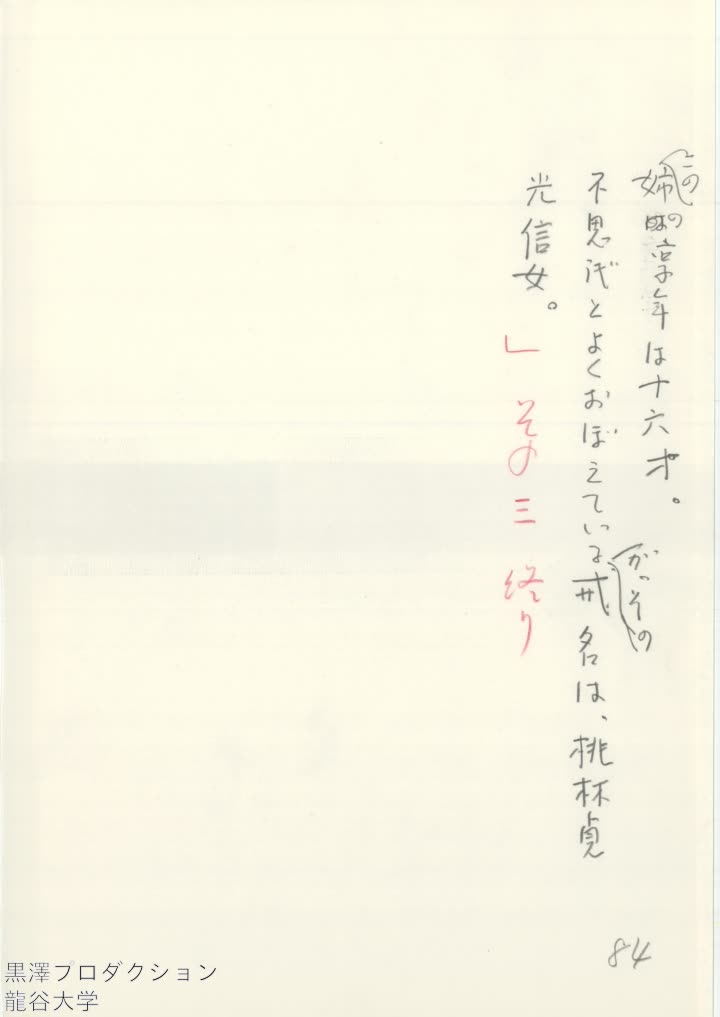 この
姉の享年は十六才。
がっその
不思議とよくおぼえている戒名は、桃林貞
光信女。」その三 終り
84
黒澤プロダクション
龍谷大学